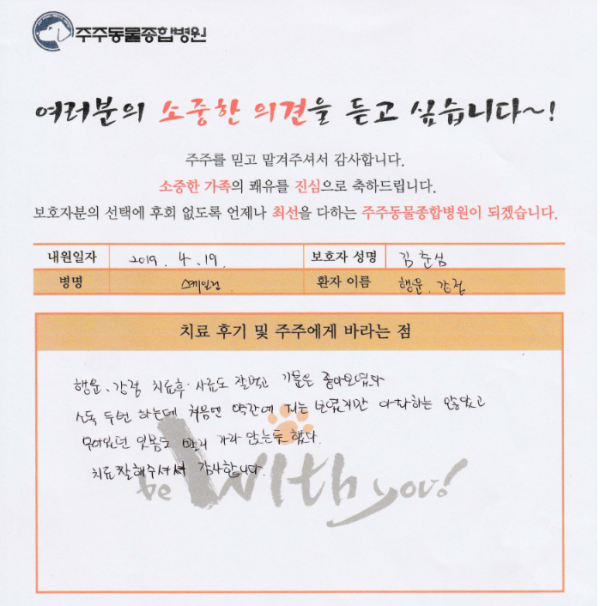 주주동물종합병원
여러분의 소중한 의견을 듣고 싶습니다~!
주주를 믿고 맡겨주셔서 감사합니다.
소중한 가족의 쾌유를 진심으로 축하드립니다.
보호자분의 선택에 후회 없도록 언제나 최선을 다하는 주주동물종합병원이 되겠습니다.
내원일자 2019. 4. 19. 보호자 성명 김춘심
병명 환자 이름 행운.
치료 후기 및 주주에게 바라는 점
행운. 치료후 사료도 잘먹고 기물은 좋아보였다
소독 두번 하는데 처음엔 약간에 피는 보였지만 아파하는
잇몸도
치료 잘해주셔서 감사합니다.
be With you!